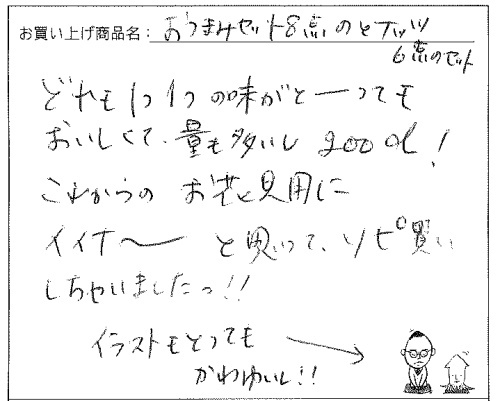 お買い上げ商品名: おつまみセット8点のとナッツ
6点のセット
どれも1つ1つの味がと〜っても
おいしくて、量も多いし good!
これからの お花見用に
イイナ〜 と思って、リピ買い
しちゃいましたっ!!
イラストもとっても
かわゆいし!!